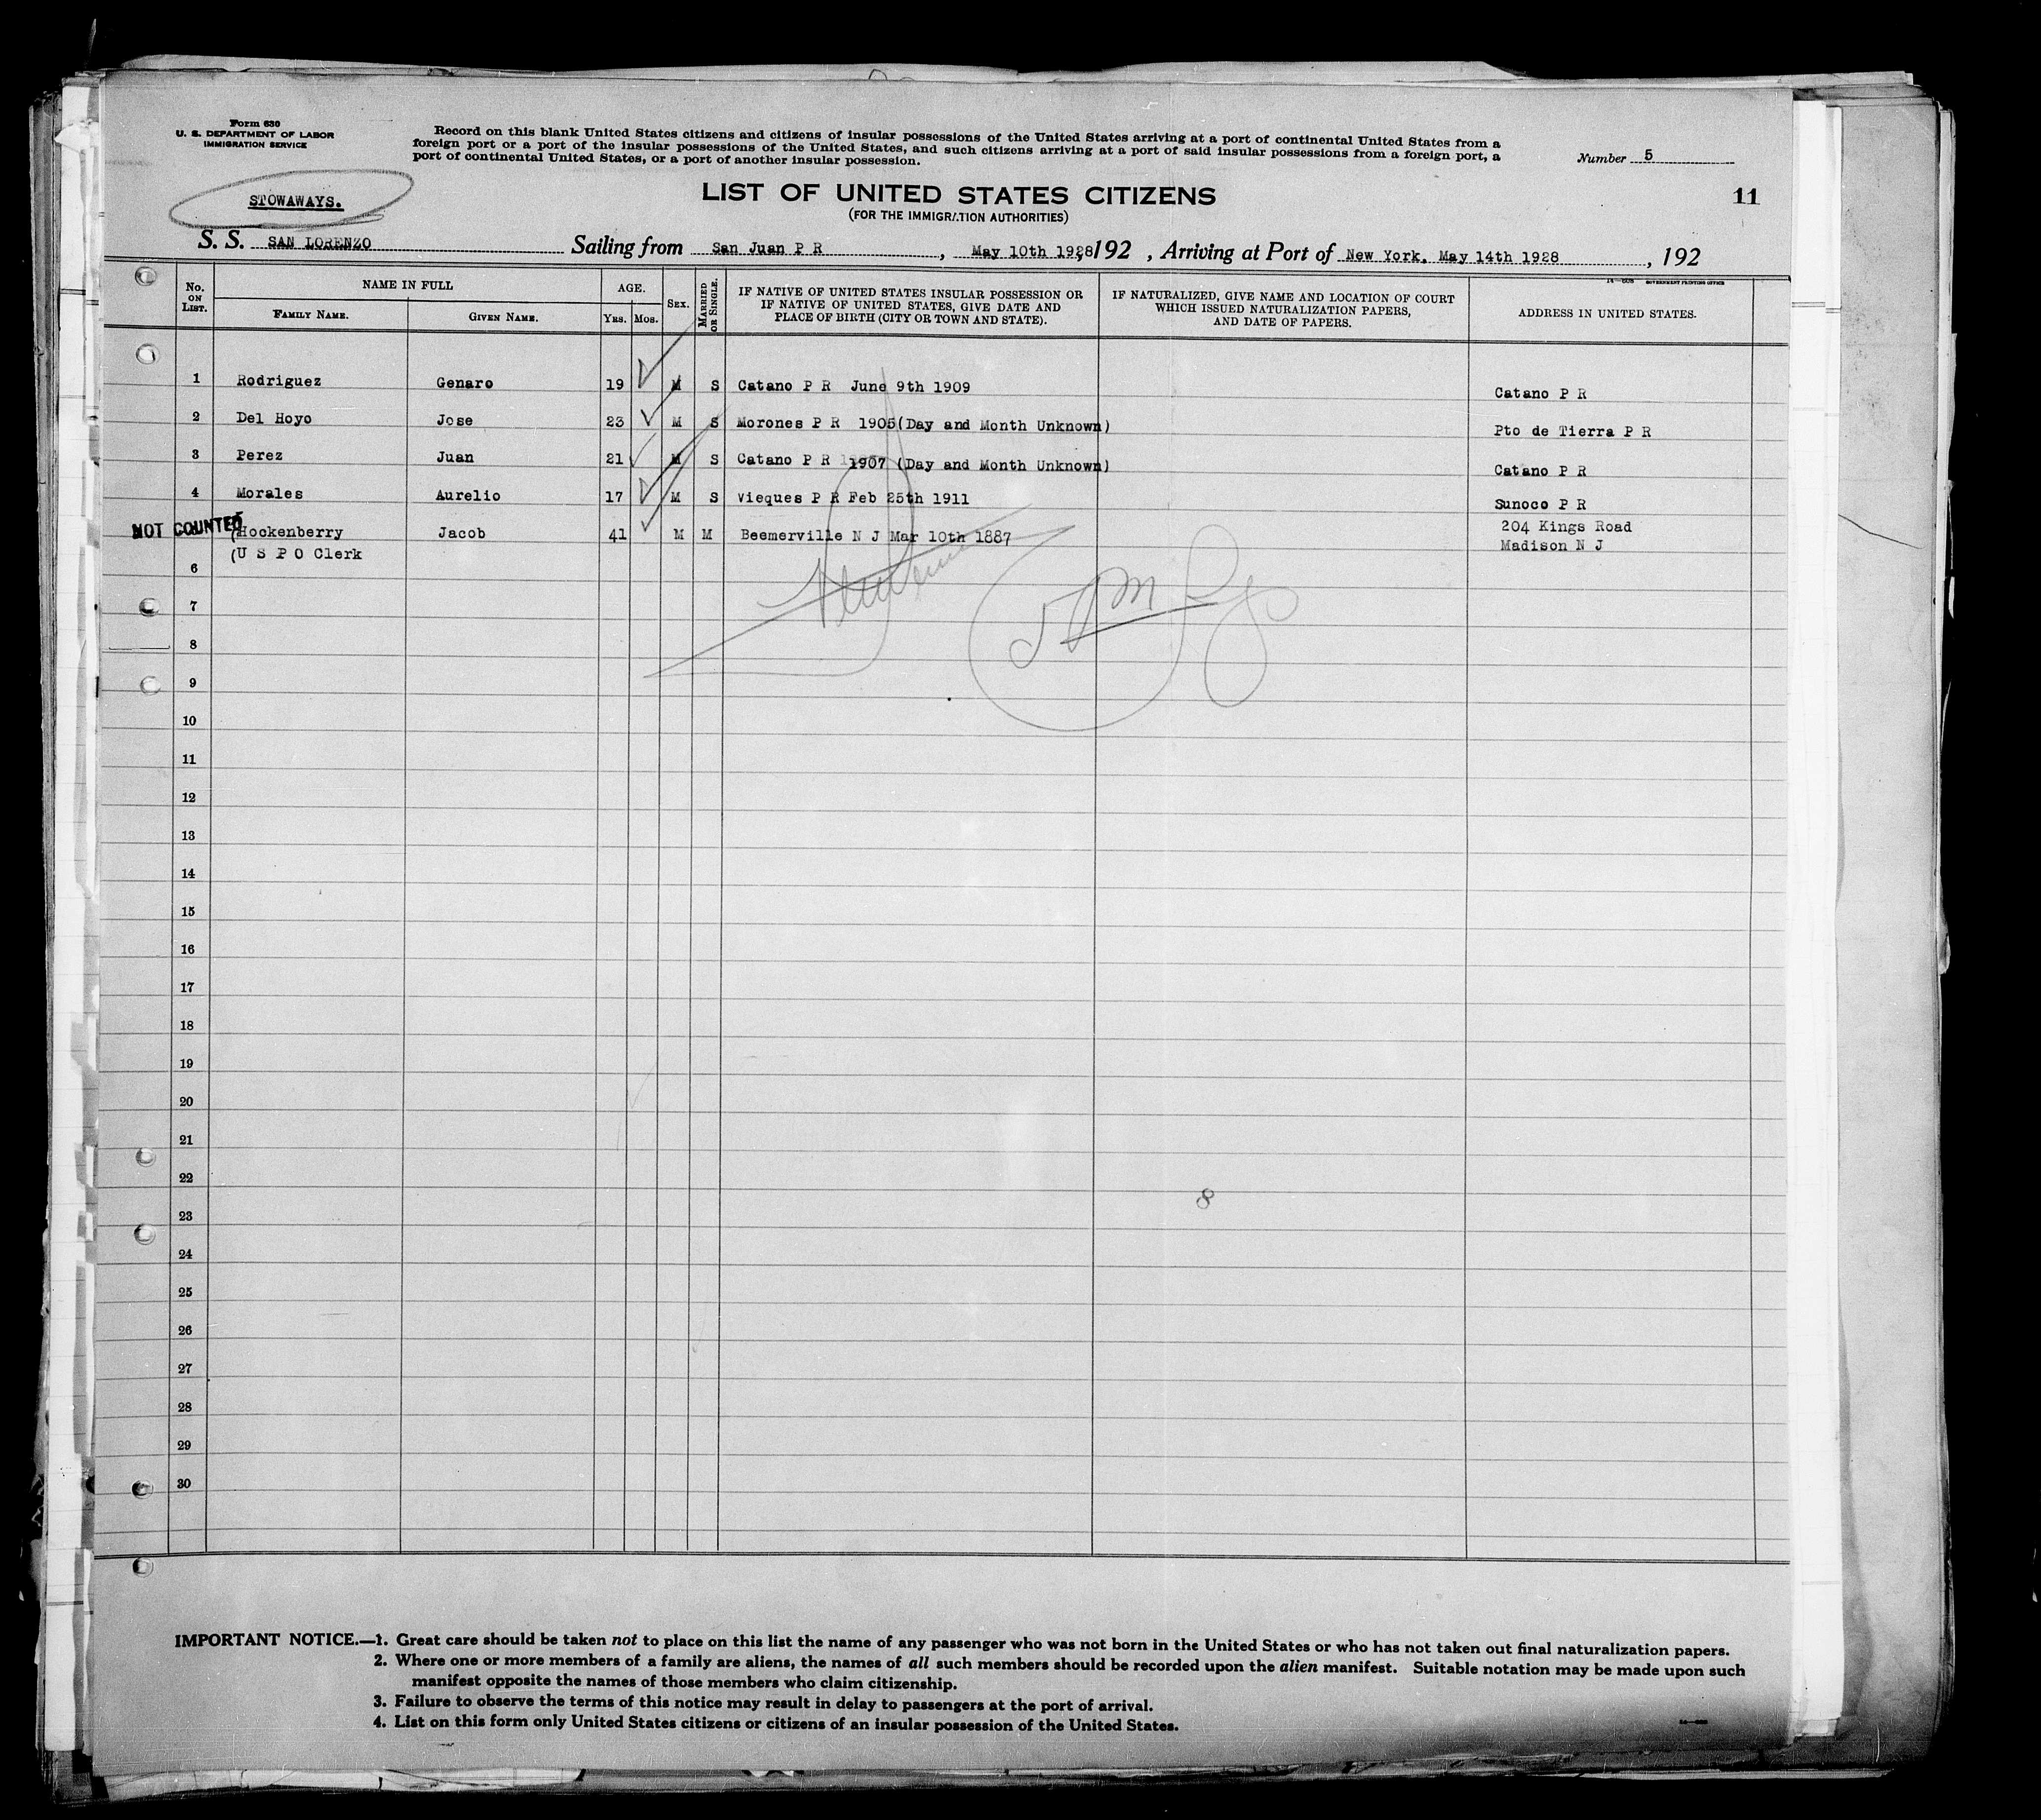 Form 630
U. S. DEPARTMENT OF LABOR
IMMIGRATION SERVICE
Record on this blank United States citizens and citizens of insular possessions of the United States arriving at a port of continental United States from a
foreign port or a port of the insular possessions of the United States, and such citizens arriving at a port of said insular possessions from a foreign port, a
port of continental United States, or a port of another insular possession.
Number 5
STOWAWAYS.
LIST OF UNITED STATES CITIZENS
(FOR THE IMMIGRATION AUTHORITIES)
11
S. S. SAN LORENZO Sailing from San Juan P R , May 10th 1928, 192 , Arriving at Port of New York, May 14th 1928 , 192
GOVERNMENT PRINTING OFFICE
No. ON LIST. NAME IN FULL FAMILY NAME. GIVEN NAME. AGE. YRS. MOS. SEX. MARRIED OR SINGLE. IF NATIVE OF UNITED STATES INSULAR POSSESSION OR IF NATIVE OF UNITED STATES, GIVE DATE AND PLACE OF BIRTH (CITY OR TOWN AND STATE). IF NATURALIZED, GIVE NAME AND LOCATION OF COURT WHICH ISSUED NATURALIZATION PAPERS, AND DATE OF PAPERS. ADDRESS IN UNITED STATES.
1 Rodriguez Genaro 19 M S Catano P R June 9th 1909 Catano P R
2 Del Hoyo Jose 23 M S Morones P R 1905(Day and Month Unknown) Pto de Tierra P R
3 Perez Juan 21 M S Catano P R 1907 (Day and Month Unknown) Catano P R
4 Morales Aurelio 17 M S Vieques P R Feb 25th 1911 Sunoco P R
NOT COUNTED (Hockenberry Jacob 41 M M Beemerville N J Mar 10th 1887 204 Kings Road
(U S P O Clerk Madison N J
6
7
8
9
10
11
12
13
14
15
16
17
18
19
20
21
22
8
23
24
25
26
27
28
29
30
IMPORTANT NOTICE.—1. Great care should be taken not to place on this list the name of any passenger who was not born in the United States or who has not taken out final naturalization papers.
2. Where one or more members of a family are aliens, the names of all such members should be recorded upon the alien manifest. Suitable notation may be made upon such
manifest opposite the names of those members who claim citizenship.
3. Failure to observe the terms of this notice may result in delay to passengers at the port of arrival.
4. List on this form only United States citizens or citizens of an insular possession of the United States.